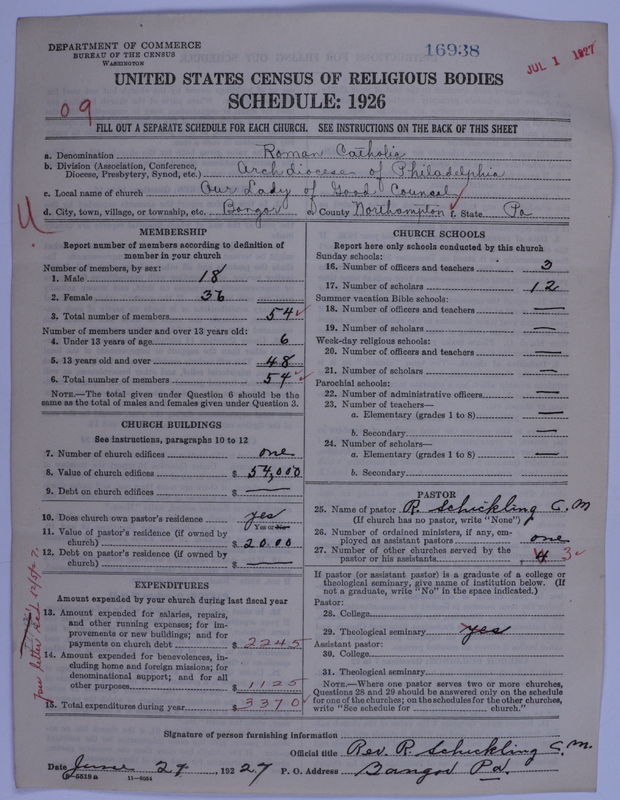 DEPARTMENT OF COMMERCE
BUREAU OF THE CENSUS
WASHINGTON
16938
JUL 1 1927
UNITED STATES CENSUS OF RELIGIOUS BODIES
SCHEDULE: 1926
09
FILL OUT A SEPARATE SCHEDULE FOR EACH CHURCH. SEE INSTRUCTIONS ON THE BACK OF THIS SHEET
a. Denomination Roman Catholic
b. Division (Association, Conference, Diocese, Presbytery, Synod, etc.) Archdiocese of Philadelphia
c. Local name of church Our Lady of Good Council
d. City, town, village, or township, etc. Bangor e. County Northampton f. State Pa
MEMBERSHIP
Report number of members according to definition of
member in your church
Number of members, by sex:
1. Male 18
2. Female 36
3. Total number of members 54
Number of members under and over 13 years old:
4. Under 13 years of age 6
5. 13 years old and over 48
6. Total number of members 54
NOTE.—The total given under Question 6 should be
same as the total of males and females given under Question 3.
CHURCH BUILDINGS
See instructions, paragraphs 10 to 12
7. Number of church edifices one
8. Value of church edifices $ 54,000
9. Debt on church edifices $ —
10. Does church own pastor's residence yes
Yes or No
11. Value of pastor's residence (if owned by
church) $ 2000
12. Debt on pastor's residence (if owned by
church) $ —
EXPENDITURES
Amount expended by your church during last fiscal year
13. Amount expended for salaries, repairs,
and other running expenses; for im-
provements or new buildings; and for
payments on church debt $ 2245
14. Amount expended for benevolences, in-
cluding home and foreign missions; for
denominational support; and for all
other purposes $ 1125
15. Total expenditures during year $ 3370
CHURCH SCHOOLS
Report here only schools conducted by this church
Sunday schools:
16. Number of officers and teachers 3
17. Number of scholars 12
Summer vacation Bible schools:
18. Number of officers and teachers —
19. Number of scholars —
Week-day religious schools:
20. Number of officers and teachers —
21. Number of scholars —
Parochial schools:
22. Number of administrative officers —
23. Number of teachers—
a. Elementary (grades 1 to 8) —
b. Secondary —
24. Number of scholars—
a. Elementary (grades 1 to 8) —
b. Secondary
PASTOR
25. Name of pastor R. Schickling C. M
(If church has no pastor, write "None")
26. Number of ordained ministers, if any, em-
ployed as assistant pastors one
27. Number of other churches served by the
pastor or his assistants 4 3
If pastor (or assistant pastor) is a graduate of a college or
theological seminary, give name of institution below. (If
not a graduate, write "No" in the space indicated.)
Pastor:
28. College
29. Theological seminary yes
Assistant pastor:
30. College
31. Theological seminary
NOTE.—Where one pastor serves two or more churches,
Questions 28 and 29 should be answered only on the schedule
for one of the churches; on the schedules for the other churches,
write "See schedule for church."
Signature of person furnishing information
Official title Rev. R Schickling C. M.
Date June 27, 1927 P. O. Address Bangor Pa.
11—8054